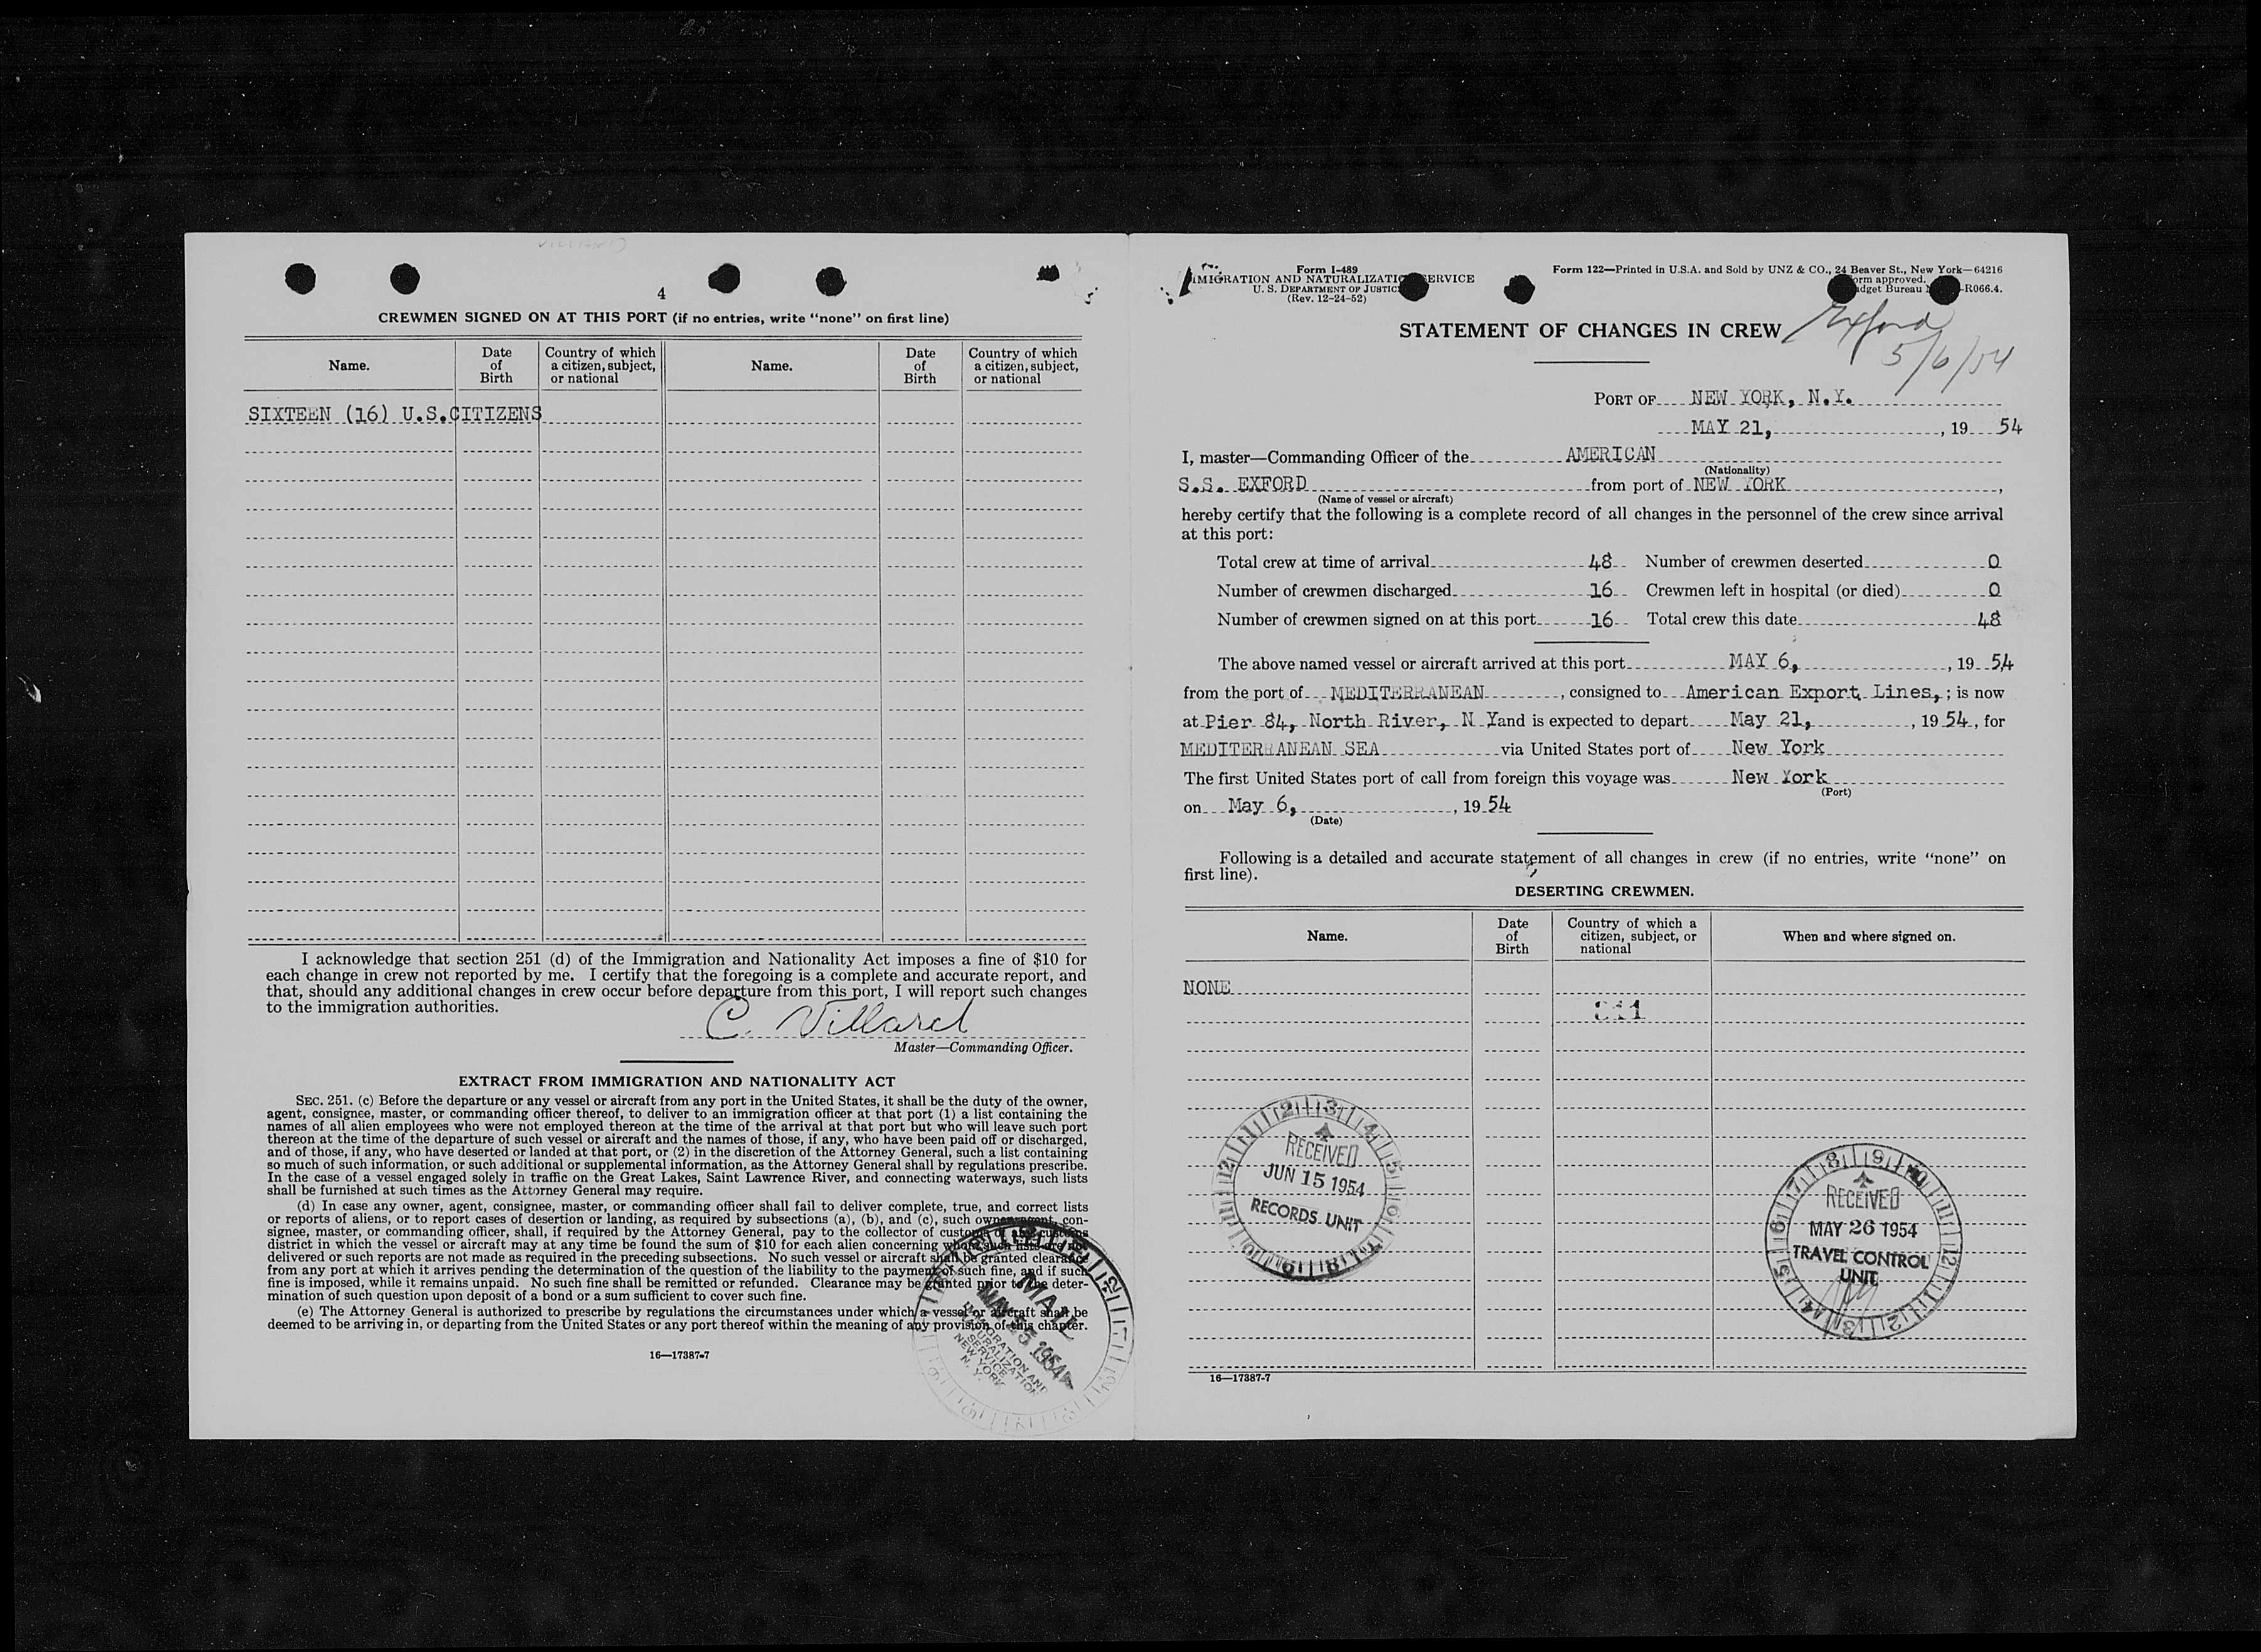 4
CREWMEN SIGNED ON AT THIS PORT (if no entries, write "none" on first line)
Name. Date of Birth Country of which a citizen, subject, or national Name. Date of Birth Country of which a citizen, subject, or national
SIXTEEN (16) U.S.CITIZENS
I acknowledge that section 251 (d) of the Immigration and Nationality Act imposes a fine of $10 for
each change in crew not reported by me. I certify that the foregoing is a complete and accurate report, and
that, should any additional changes in crew occur before departure from this port, I will report such changes
to the immigration authorities.
C. Villard
Master—Commanding Officer.
EXTRACT FROM IMMIGRATION AND NATIONALITY ACT
SEC. 251. (c) Before the departure or any vessel or aircraft from any port in the United States, it shall be the duty of the owner,
agent, consignee, master, or commanding officer thereof, to deliver to an immigration officer at that port (1) a list containing the
names of all alien employees who were not employed thereon at the time of the arrival at that port but who will leave such port
thereon at the time of the departure of such vessel or aircraft and the names of those, if any, who have been paid off or discharged,
and of those, if any, who have deserted or landed at that port, or (2) in the discretion of the Attorney General, such a list containing
so much of such information, or such additional or supplemental information, as the Attorney General shall by regulations prescribe.
In the case of a vessel engaged solely in traffic on the Great Lakes, Saint Lawrence River, and connecting waterways, such lists
shall be furnished at such times as the Attorney General may require.
(d) In case any owner, agent, consignee, master, or commanding officer shall fail to deliver complete, true, and correct lists
or reports of aliens, or to report cases of desertion or landing, as required by subsections (a), (b), and (c), such owner, agent, con-
signee, master, or commanding officer, shall, if required by the Attorney General, pay to the collector of customs of any customs
district in which the vessel or aircraft may at any time be found the sum of $10 for each alien concerning whom such lists are not
delivered or such reports are not made as required in the preceding subsections. No such vessel or aircraft shall be granted clearance
from any port at which it arrives pending the determination of the question of the liability to the payment of such fine, and if such
fine is imposed, while it remains unpaid. No such fine shall be remitted or refunded. Clearance may be granted prior to the deter-
mination of such question upon deposit of a bond or a sum sufficient to cover such fine.
(e) The Attorney General is authorized to prescribe by regulations the circumstances under which a vessel or aircraft shall be
deemed to be arriving in, or departing from the United States or any port thereof within the meaning of any provision of this chapter.
MAIL
MAY 25 1954
IMMIGRATION AND
NATURALIZATION
SERVICE
NEW YORK
N. Y.
16—17387-7
Form I-489
IMIGRATION AND NATURALIZATIO SERVICE
U. S. DEPARTMENT OF JUSTIC
(Rev. 12-24-52)
Form 122—Printed in U.S.A. and Sold by UNZ & CO., 24 Beaver St., New York—64216
orm approved.
dget Bureau -R066.4.
STATEMENT OF CHANGES IN CREW
Exford
5/6/54
PORT OF NEW YORK, N.Y.
MAY 21, , 19 54
I, master—Commanding Officer of the AMERICAN
(Nationality)
S.S. EXFORD from port of NEW YORK ,
(Name of vessel or aircraft)
hereby certify that the following is a complete record of all changes in the personnel of the crew since arrival
at this port:
Total crew at time of arrival 48 Number of crewmen deserted 0
Number of crewmen discharged 16 Crewmen left in hospital (or died) 0
Number of crewmen signed on at this port 16 Total crew this date 48
The above named vessel or aircraft arrived at this port MAY 6, , 19 54
from the port of MEDITERRANEAN , consigned to American Export Lines, ; is now
at Pier 84, North River, N Y and is expected to depart May 21, , 19 54 , for
MEDITERRANEAN SEA via United States port of New York
The first United States port of call from foreign this voyage was New York
(Port)
on May 6, , 19 54
(Date)
Following is a detailed and accurate statement of all changes in crew (if no entries, write "none" on
first line).
DESERTING CREWMEN.
Name. Date of Birth Country of which a citizen, subject, or national When and where signed on.
NONE
RECEIVED
JUN 15 1954
RECORDS UNIT
RECEIVED
MAY 26 1954
TRAVEL CONTROL
UNIT
16—17387-7